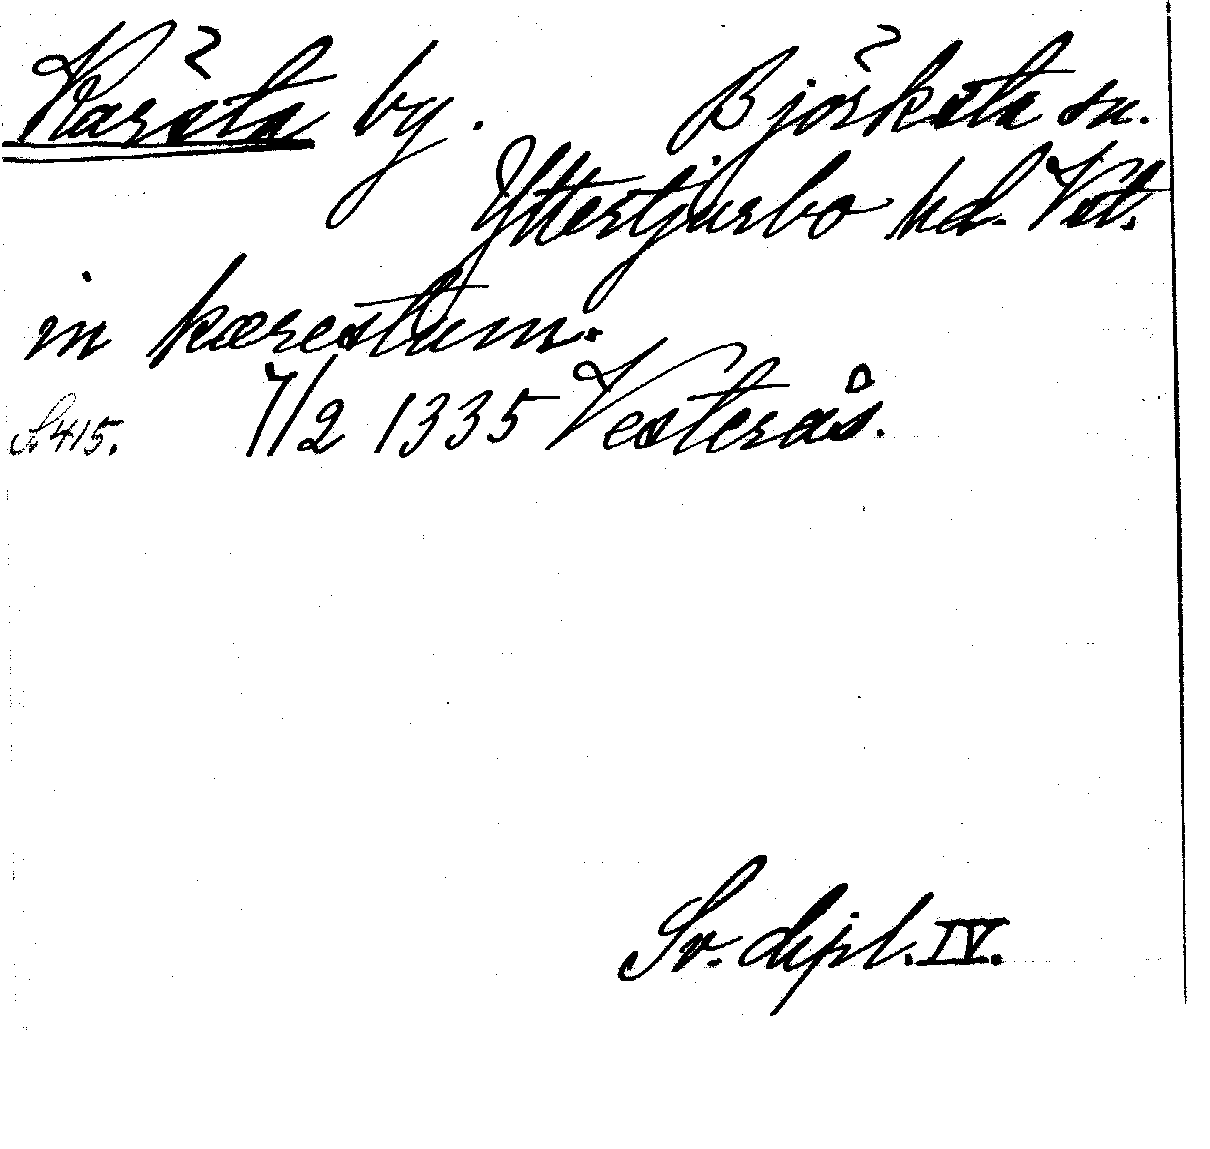 Kärsta by. Björksta sn.
Yttertjurbo hd. Vstl.
in kærestum.
S. 415. 7/2 1335 Vesterås.
Sv. dipl. IV.